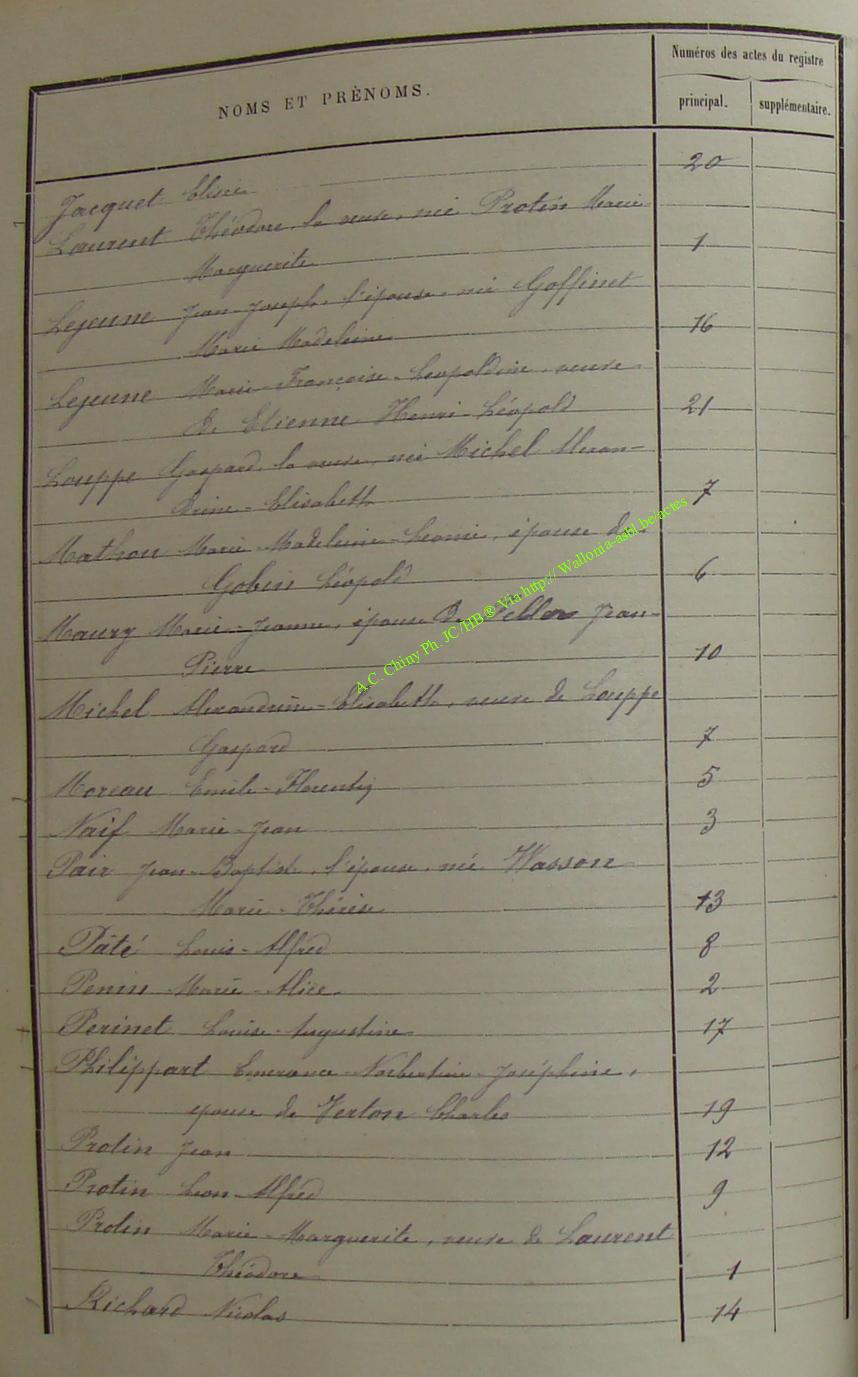 Numéros des actes du registre
NOMS ET PRÉNOMS.
principal. supplémentaire.
Jacquet Elise 20
Laurent Théodore, la veuve, née Protin Marie
Marguerite 1
Lejeune Jean-Joseph, l'épouse, née Goffinet
Marie Madeleine 16
Lejeune Marie-Françoise-Léopoldine, veuve
de Etienne Henri-Léopold 21
Louppe Gaspard, la veuve, née Michel Alexan-
drine-Elisabeth 7
Mathon Marie-Madeleine-Leonie, épouse de
Gobin Léopold 6
Maury Marie-Jeanne, épouse de Jean-
Pierre 10
Michel Alexandrine-Elisabeth, veuve de Louppe
Gaspard 7
Moreau Emile-Florentin 5
Naif Marie-Jean 3
Pair Jean-Baptiste, l'épouse, née Wasson
Marie-Thérèse 13
Pâté Louis-Alfred 8
Penin Marie-Alice 2
Perinet Louise-Augustine 17
Philippart Emerance-Norbertine-Joséphine,
épouse de Verton Charles 19
Protin Jean 12
Protin Léon-Alfred 9
Protin Marie-Marguerite, veuve de Laurent
Théodore 1
Richard Nicolas 14
A.C. Chiny Ph. JC/HB® Via http:// Wallonia-asbl.be/actes